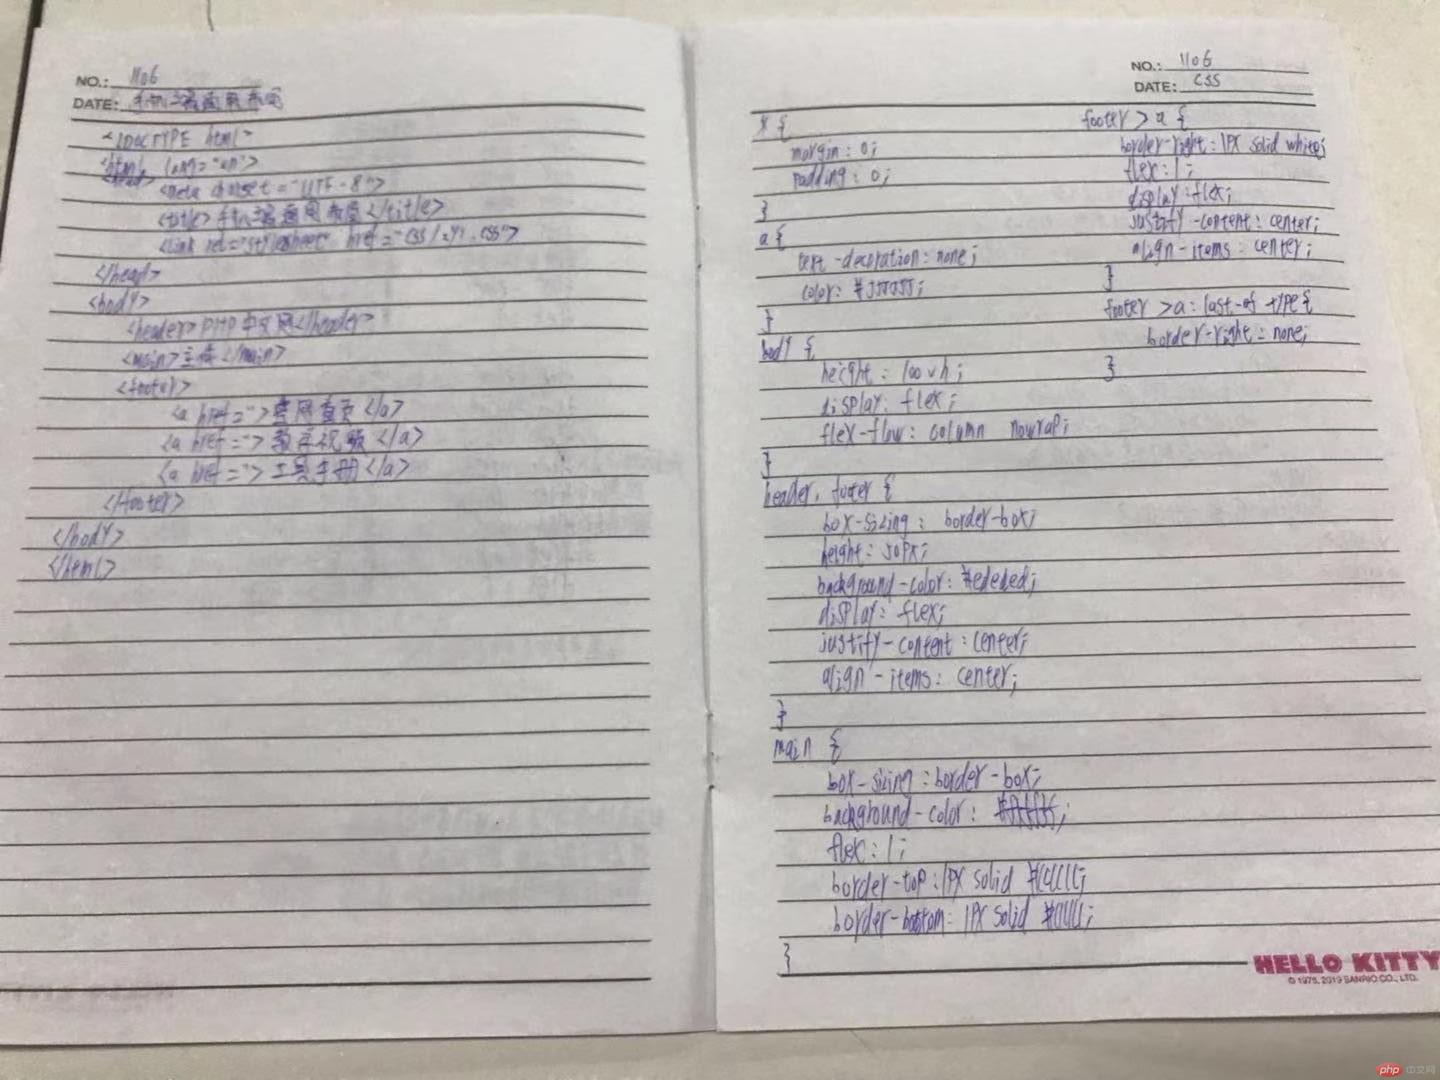 NO.: 1106
DATE: 手机端通用布局
<!DOCTYPE html>
<html lang="en">
<head>
<meta charset="UTF-8">
<title>手机端通用布局</title>
<link rel="stylesheet" href="css/zy1.css">
</head>
<body>
<header>PHP中文网</header>
<main>主体</main>
<footer>
<a href="">官网首页</a>
<a href="">教学视频</a>
<a href="">工具手册</a>
</footer>
</body>
</html>
NO.: 1106
DATE: CSS
* {
margin: 0;
padding: 0;
}
a {
text-decoration: none;
color: #555555;
}
body {
height: 100vh;
display: flex;
flex-flow: column nowrap;
}
header, footer {
box-sizing: border-box;
height: 50px;
background-color: #ededed;
display: flex;
justify-content: center;
align-items: center;
}
main {
box-sizing: border-box;
background-color: #ffffff;
flex: 1;
border-top: 1PX solid
border-bottom: 1PX solid
}
footer > a {
border-right: 1PX solid white;
flex: 1;
display: flex;
justify-content: center;
align-items: center;
}
footer > a: last-of type {
border-right: none;
}
HELLO KITTY
© 1976, 2019 SANRIO CO., LTD.
php 中文网